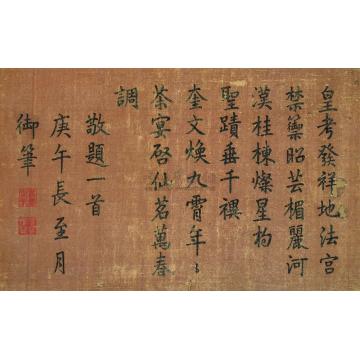 皇考發祥地法宮
禁籞昭芸楣麗河
漢桂棟燦星杓
聖蹟垂千禩
奎文煥九霄年〻
茶宴啓仙茗萬春
調
敬題一首
庚午長至月
御筆